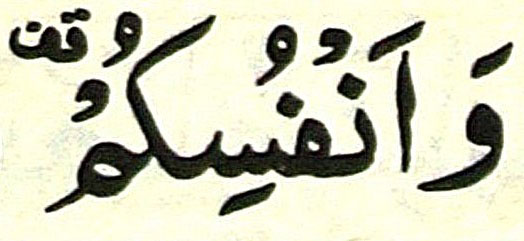 وَاَنْفُسِكُمْ قف